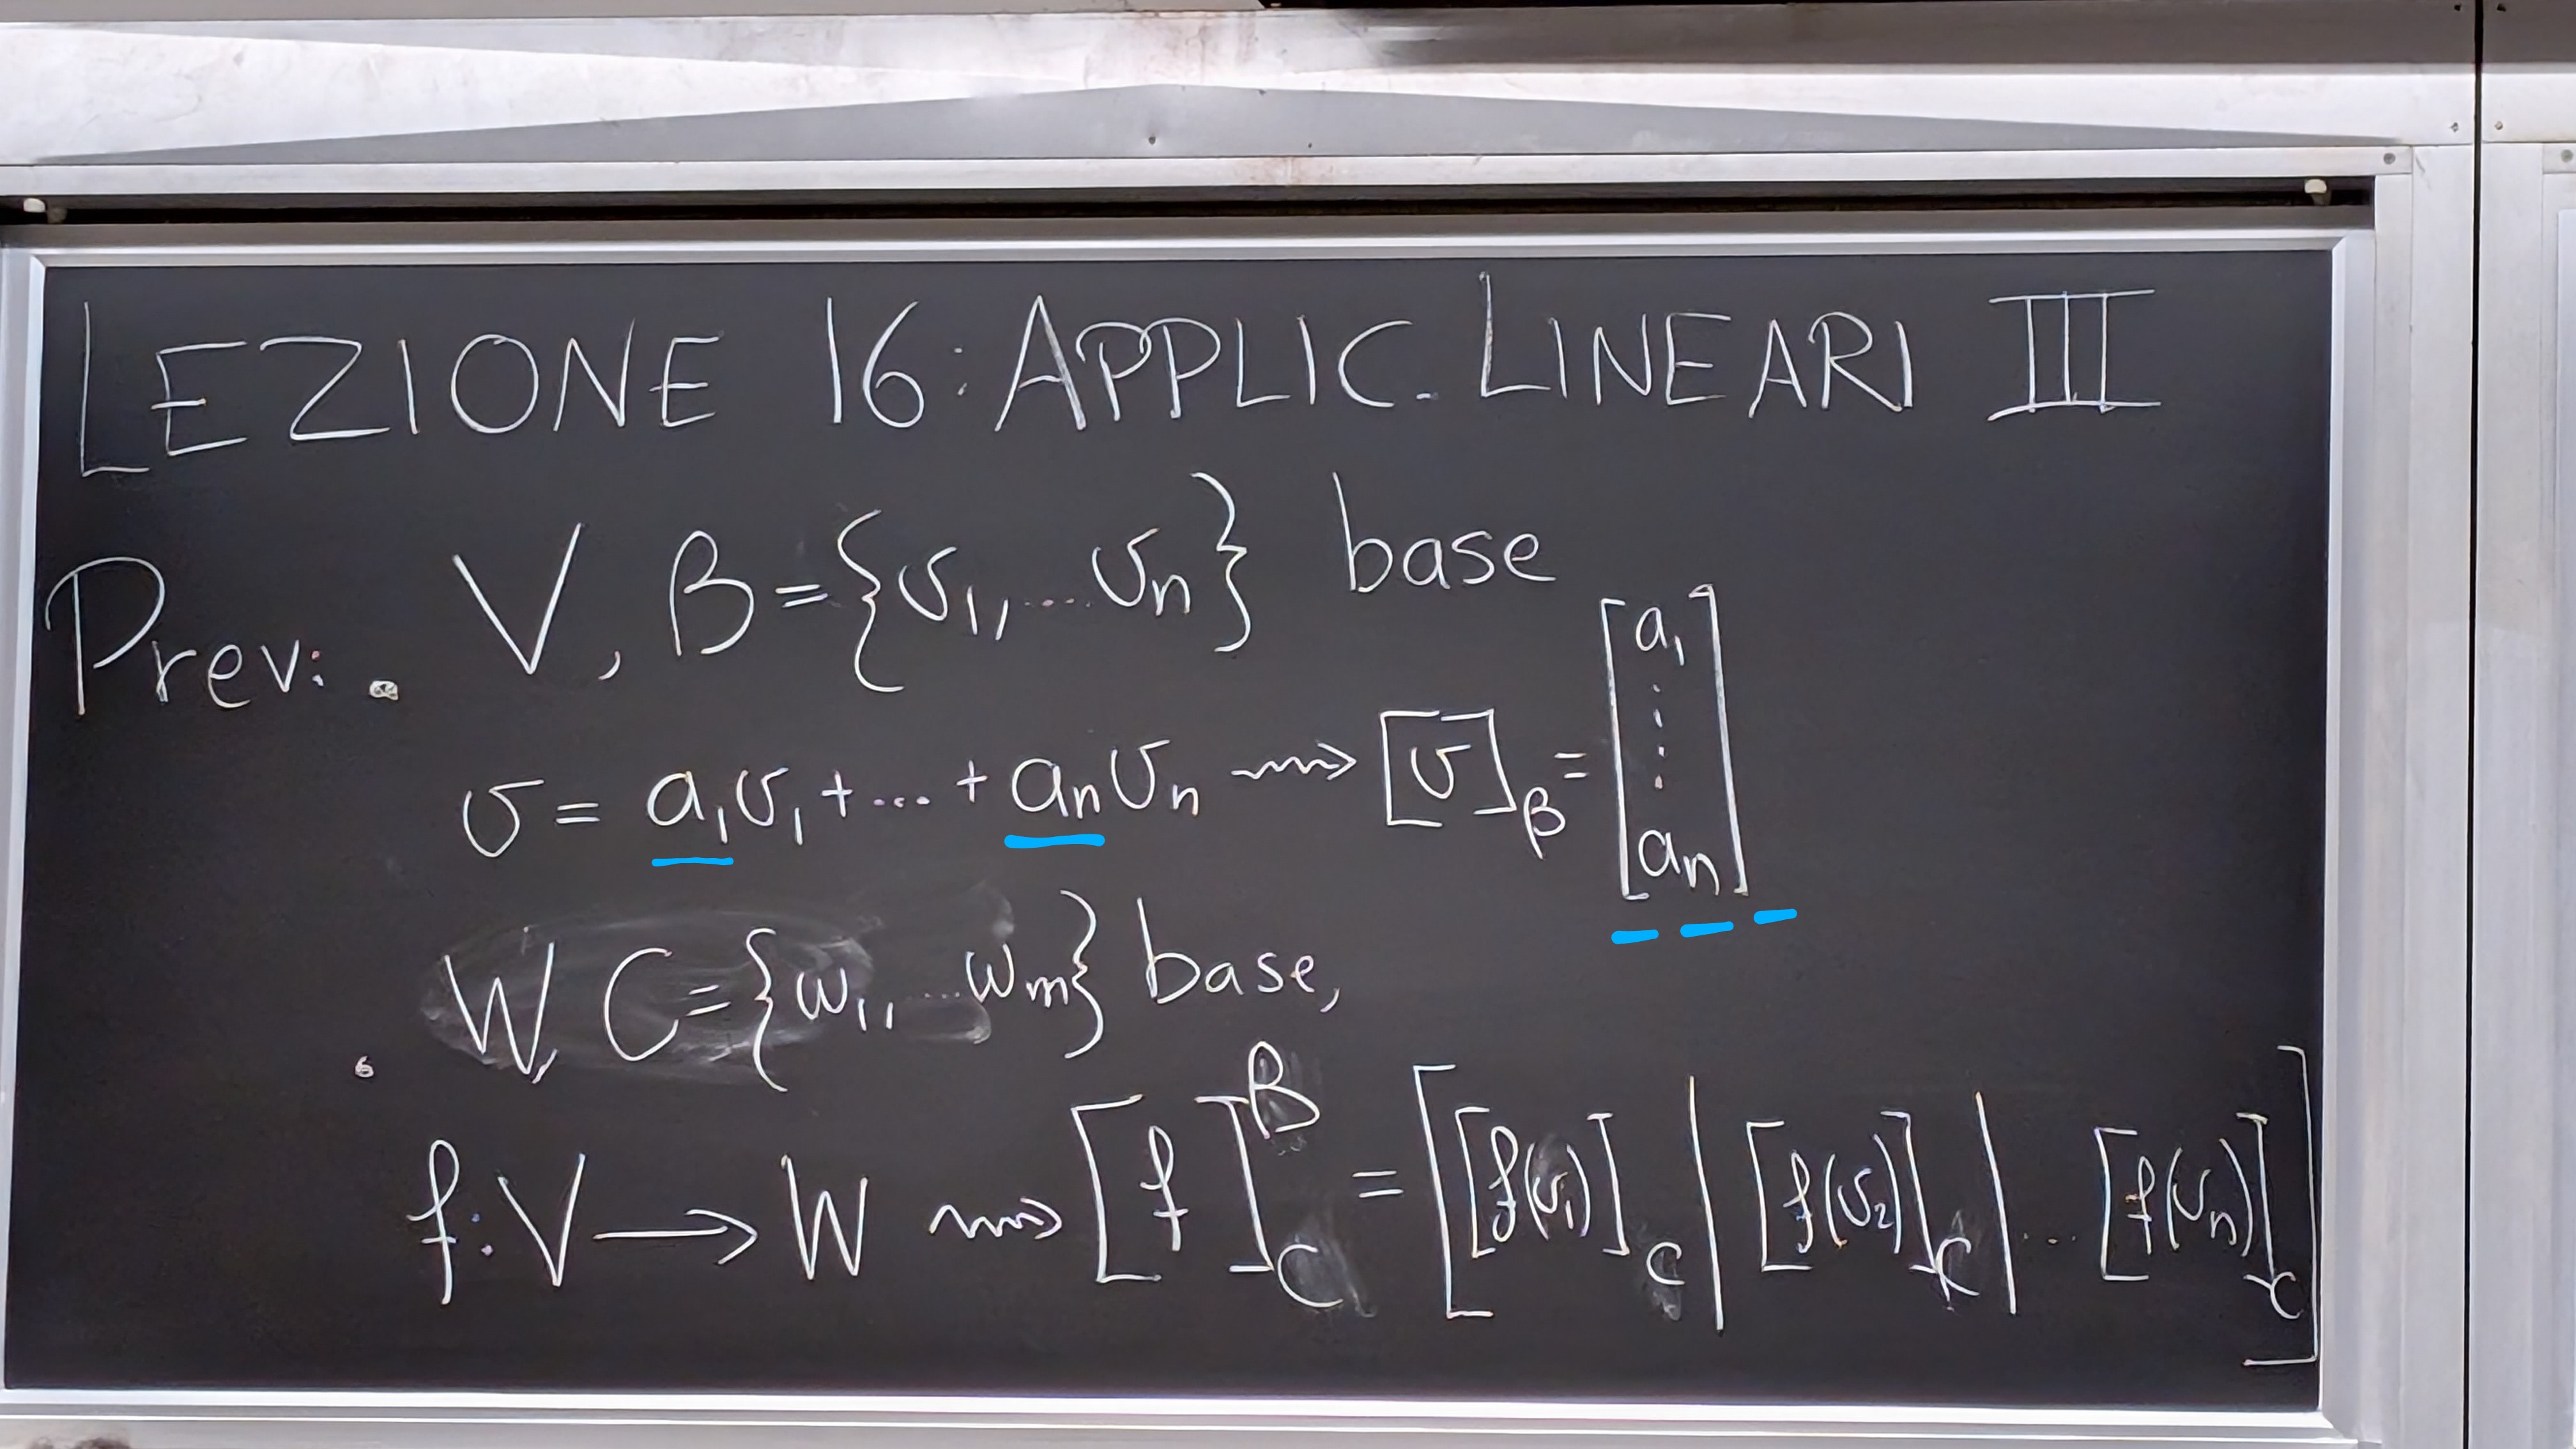 LEZIONE 16: APPLIC. LINEARI III
Prev: • V, B = {v₁, ... vₙ} base
v = a₁v₁ + ... + aₙvₙ ⟿ [v]_B = [a₁ ⋮ aₙ]
W, C = {w₁, ... wₘ} base,
• f: V → W ⟿ [f]^B_C = [[f(v₁)]_C | [f(v₂)]_C | ... [f(vₙ)]_C]